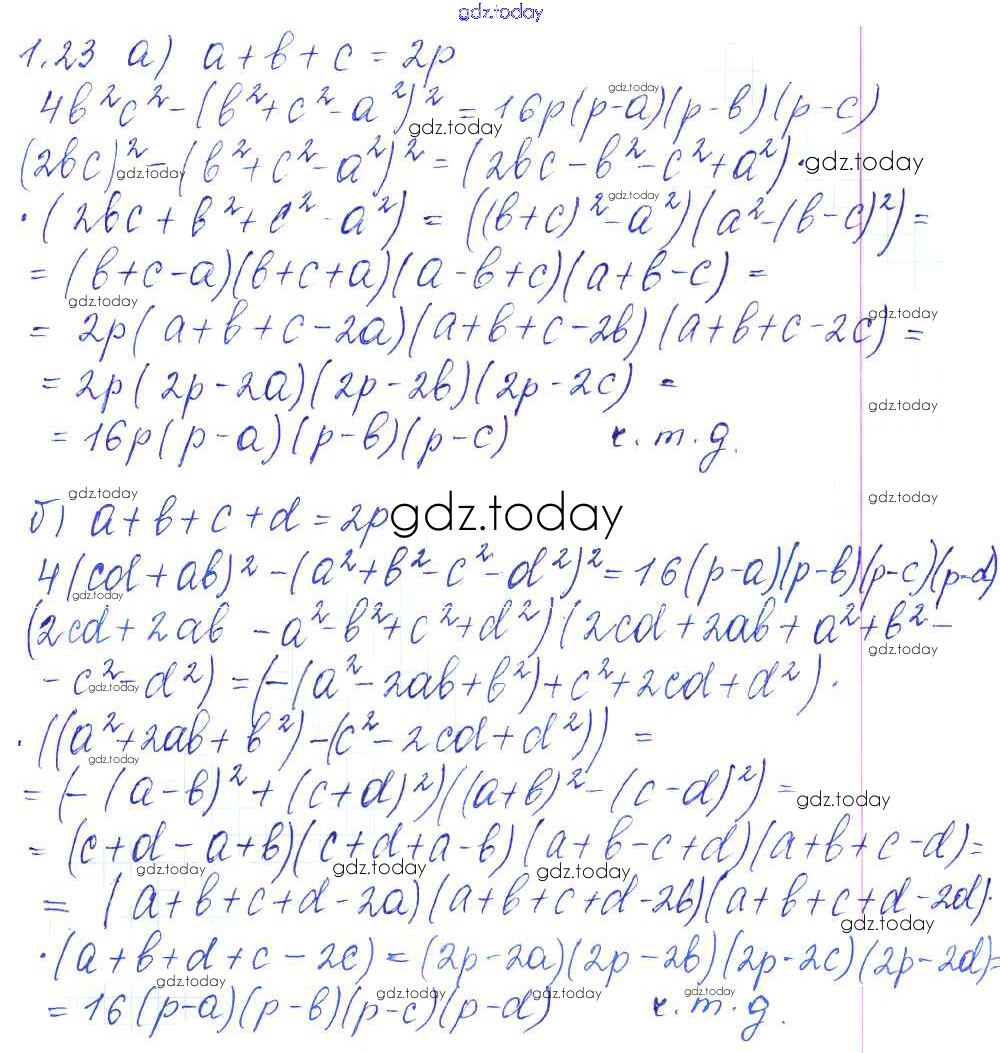 gdz.today
1.23 а) a + b + c = 2p
4b²c² - (b² + c² - a²)² = 16p(p-a)(p-b)(p-c)
gdz.today
gdz.today
(2bc)² - (b² + c² - a²)² = (2bc - b² - c² + a²) ·
gdz.today
gdz.today
· (2bc + b² + c² - a²) = ((b+c)² - a²)(a² - (b-c)²) =
gdz.today
= (b+c-a)(b+c+a)(a-b+c)(a+b-c) =
gdz.today
gdz.today
= 2p(a+b+c-2a)(a+b+c-2b)(a+b+c-2c) =
= 2p(2p-2a)(2p-2b)(2p-2c) =
gdz.today
= 16p(p-a)(p-b)(p-c) ч.т.д.
gdz.today
gdz.today
б) a+b+c+d = 2p
gdz.today
4(cd+ab)² - (a²+b²-c²-d²)² = 16(p-a)(p-b)(p-c)(p-d)
gdz.today
(2cd+2ab - a²-b²+c²+d²)(2cd+2ab+a²+b²-
gdz.today
- c²-d²) = (-(a²-2ab+b²)+c²+2cd+d²) ·
gdz.today
· ((a²+2ab+b²)-(c²-2cd+d²)) =
gdz.today
= (-(a-b)²+(c+d)²)((a+b)²-(c-d)²) =
gdz.today
= (c+d-a+b)(c+d+a-b)(a+b-c+d)(a+b+c-d) =
gdz.today
gdz.today
gdz.today
= (a+b+c+d-2a)(a+b+c+d-2b)(a+b+c+d-2d)·
gdz.today
· (a+b+d+c-2c) = (2p-2a)(2p-2b)(2p-2c)(2p-2d) =
gdz.today
gdz.today
gdz.today
gdz.today
= 16(p-a)(p-b)(p-c)(p-d) ч.т.д.